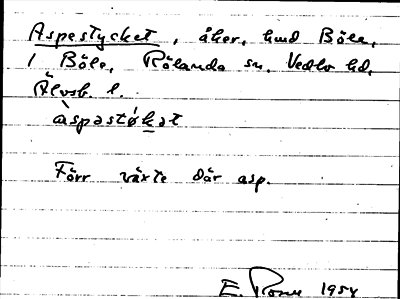 Aspestycket, åker, hmd Böle,
1 Böle, Rölanda sn, Vedbo hd,
Älvsb. l.
àspəstø̀kət
Förr växte där asp.
E. 1954